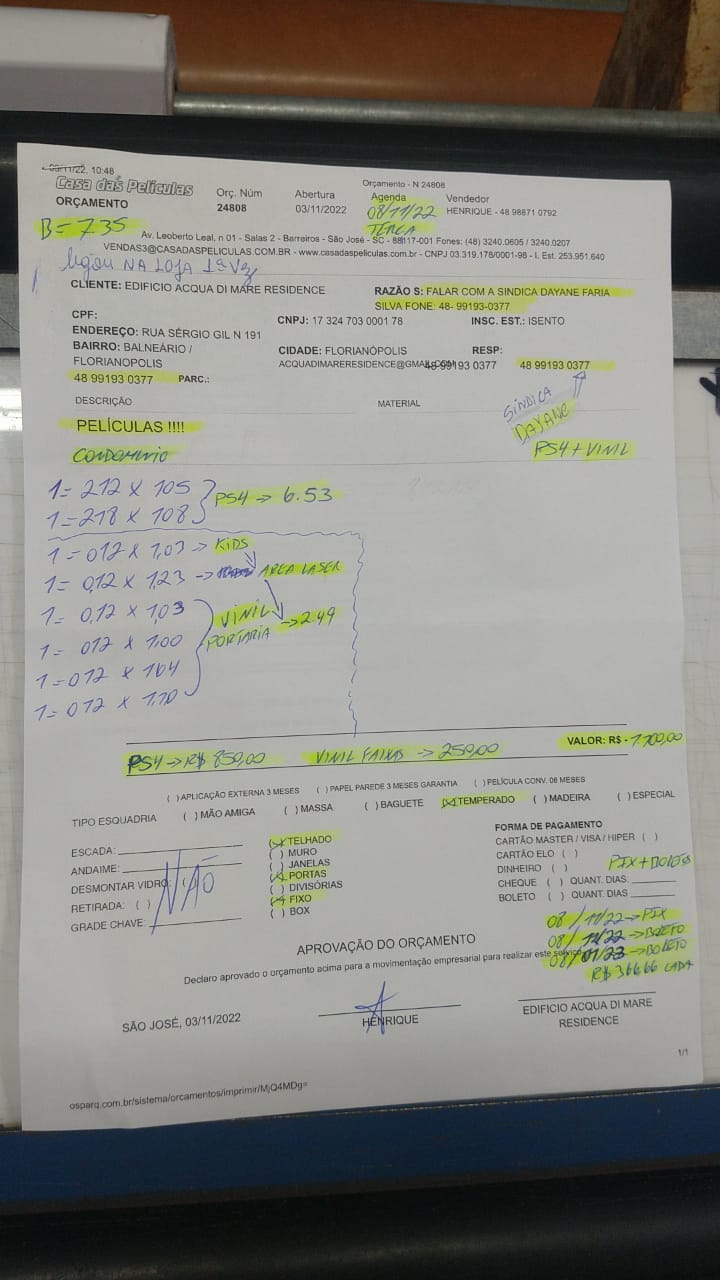 03/11/22, 10:48
Orçamento - N 24808
Casa das Películas
ORÇAMENTO
Orç. Núm
24808
Abertura
03/11/2022
Agenda
08/11/22
TERÇA
Vendedor
HENRIQUE - 48 98871 0792
B= 7.35
Av. Leoberto Leal, n 01 - Salas 2 - Barreiros - São José - SC - 88117-001 Fones: (48) 3240.0605 / 3240.0207
VENDAS3@CASADASPELICULAS.COM.BR - www.casadaspeliculas.com.br - CNPJ 03.319.178/0001-98 - I. Est. 253.951.640
ligou NA LOJA 1ª Vz
CLIENTE: EDIFICIO ACQUA DI MARE RESIDENCE
RAZÃO S: FALAR COM A SINDICA DAYANE FARIA
SILVA FONE: 48- 99193-0377
CPF:
CNPJ: 17 324 703 0001 78
INSC. EST.: ISENTO
ENDEREÇO: RUA SÉRGIO GIL N 191
BAIRRO: BALNEÁRIO /
FLORIANOPOLIS
CIDADE: FLORIANÓPOLIS
RESP:
ACQUADIMARERESIDENCE@GMAIL.COM
48 99193 0377
48 99193 0377
48 99193 0377 PARC.:
DESCRIÇÃO
MATERIAL
SÍNDICA
DAYANE
PELÍCULAS !!!!
CONDOMINIO
PS4 + VINIL
1= 212 X 105
1= 218 X 108
PS4 -> 6.53
1= 012 X 1,03 -> KIDS
1= 0,12 X 1,23 -> AREA LASER
1= 0,12 X 1,03
1= 012 X 1,00
1= 012 X 104
1= 012 X 1,10
VINIL
PORTARIA -> 2.49
PS4 -> R$ 850,00 VINIL FAIXAS -> 250,00
VALOR: R$ - 1.100,00
( ) APLICAÇÃO EXTERNA 3 MESES ( ) PAPEL PAREDE 3 MESES GARANTIA ( ) PELÍCULA CONV. 06 MESES
TIPO ESQUADRIA ( ) MÃO AMIGA ( ) MASSA ( ) BAGUETE (X) TEMPERADO ( ) MADEIRA ( ) ESPECIAL
ESCADA:
ANDAIME:
DESMONTAR VIDRO: (
RETIRADA: ( )
GRADE CHAVE:
NÃO
(X) TELHADO
( ) MURO
( ) JANELAS
(X) PORTAS
( ) DIVISÓRIAS
(X) FIXO
( ) BOX
FORMA DE PAGAMENTO
CARTÃO MASTER / VISA / HIPER ( )
CARTÃO ELO ( )
DINHEIRO ( )
PIX + BOLETO
CHEQUE ( ) QUANT. DIAS:
BOLETO ( ) QUANT. DIAS
08/11/22 -> PIX
08/12/22 -> BOLETO
08/01/23 -> BOLETO
R$ 366,66 CADA
APROVAÇÃO DO ORÇAMENTO
Declaro aprovado o orçamento acima para a movimentação empresarial para realizar este serviço
SÃO JOSÉ, 03/11/2022
HENRIQUE
EDIFICIO ACQUA DI MARE
RESIDENCE
1/1
osparq.com.br/sistema/orcamentos/imprimir/MjQ4MDg=